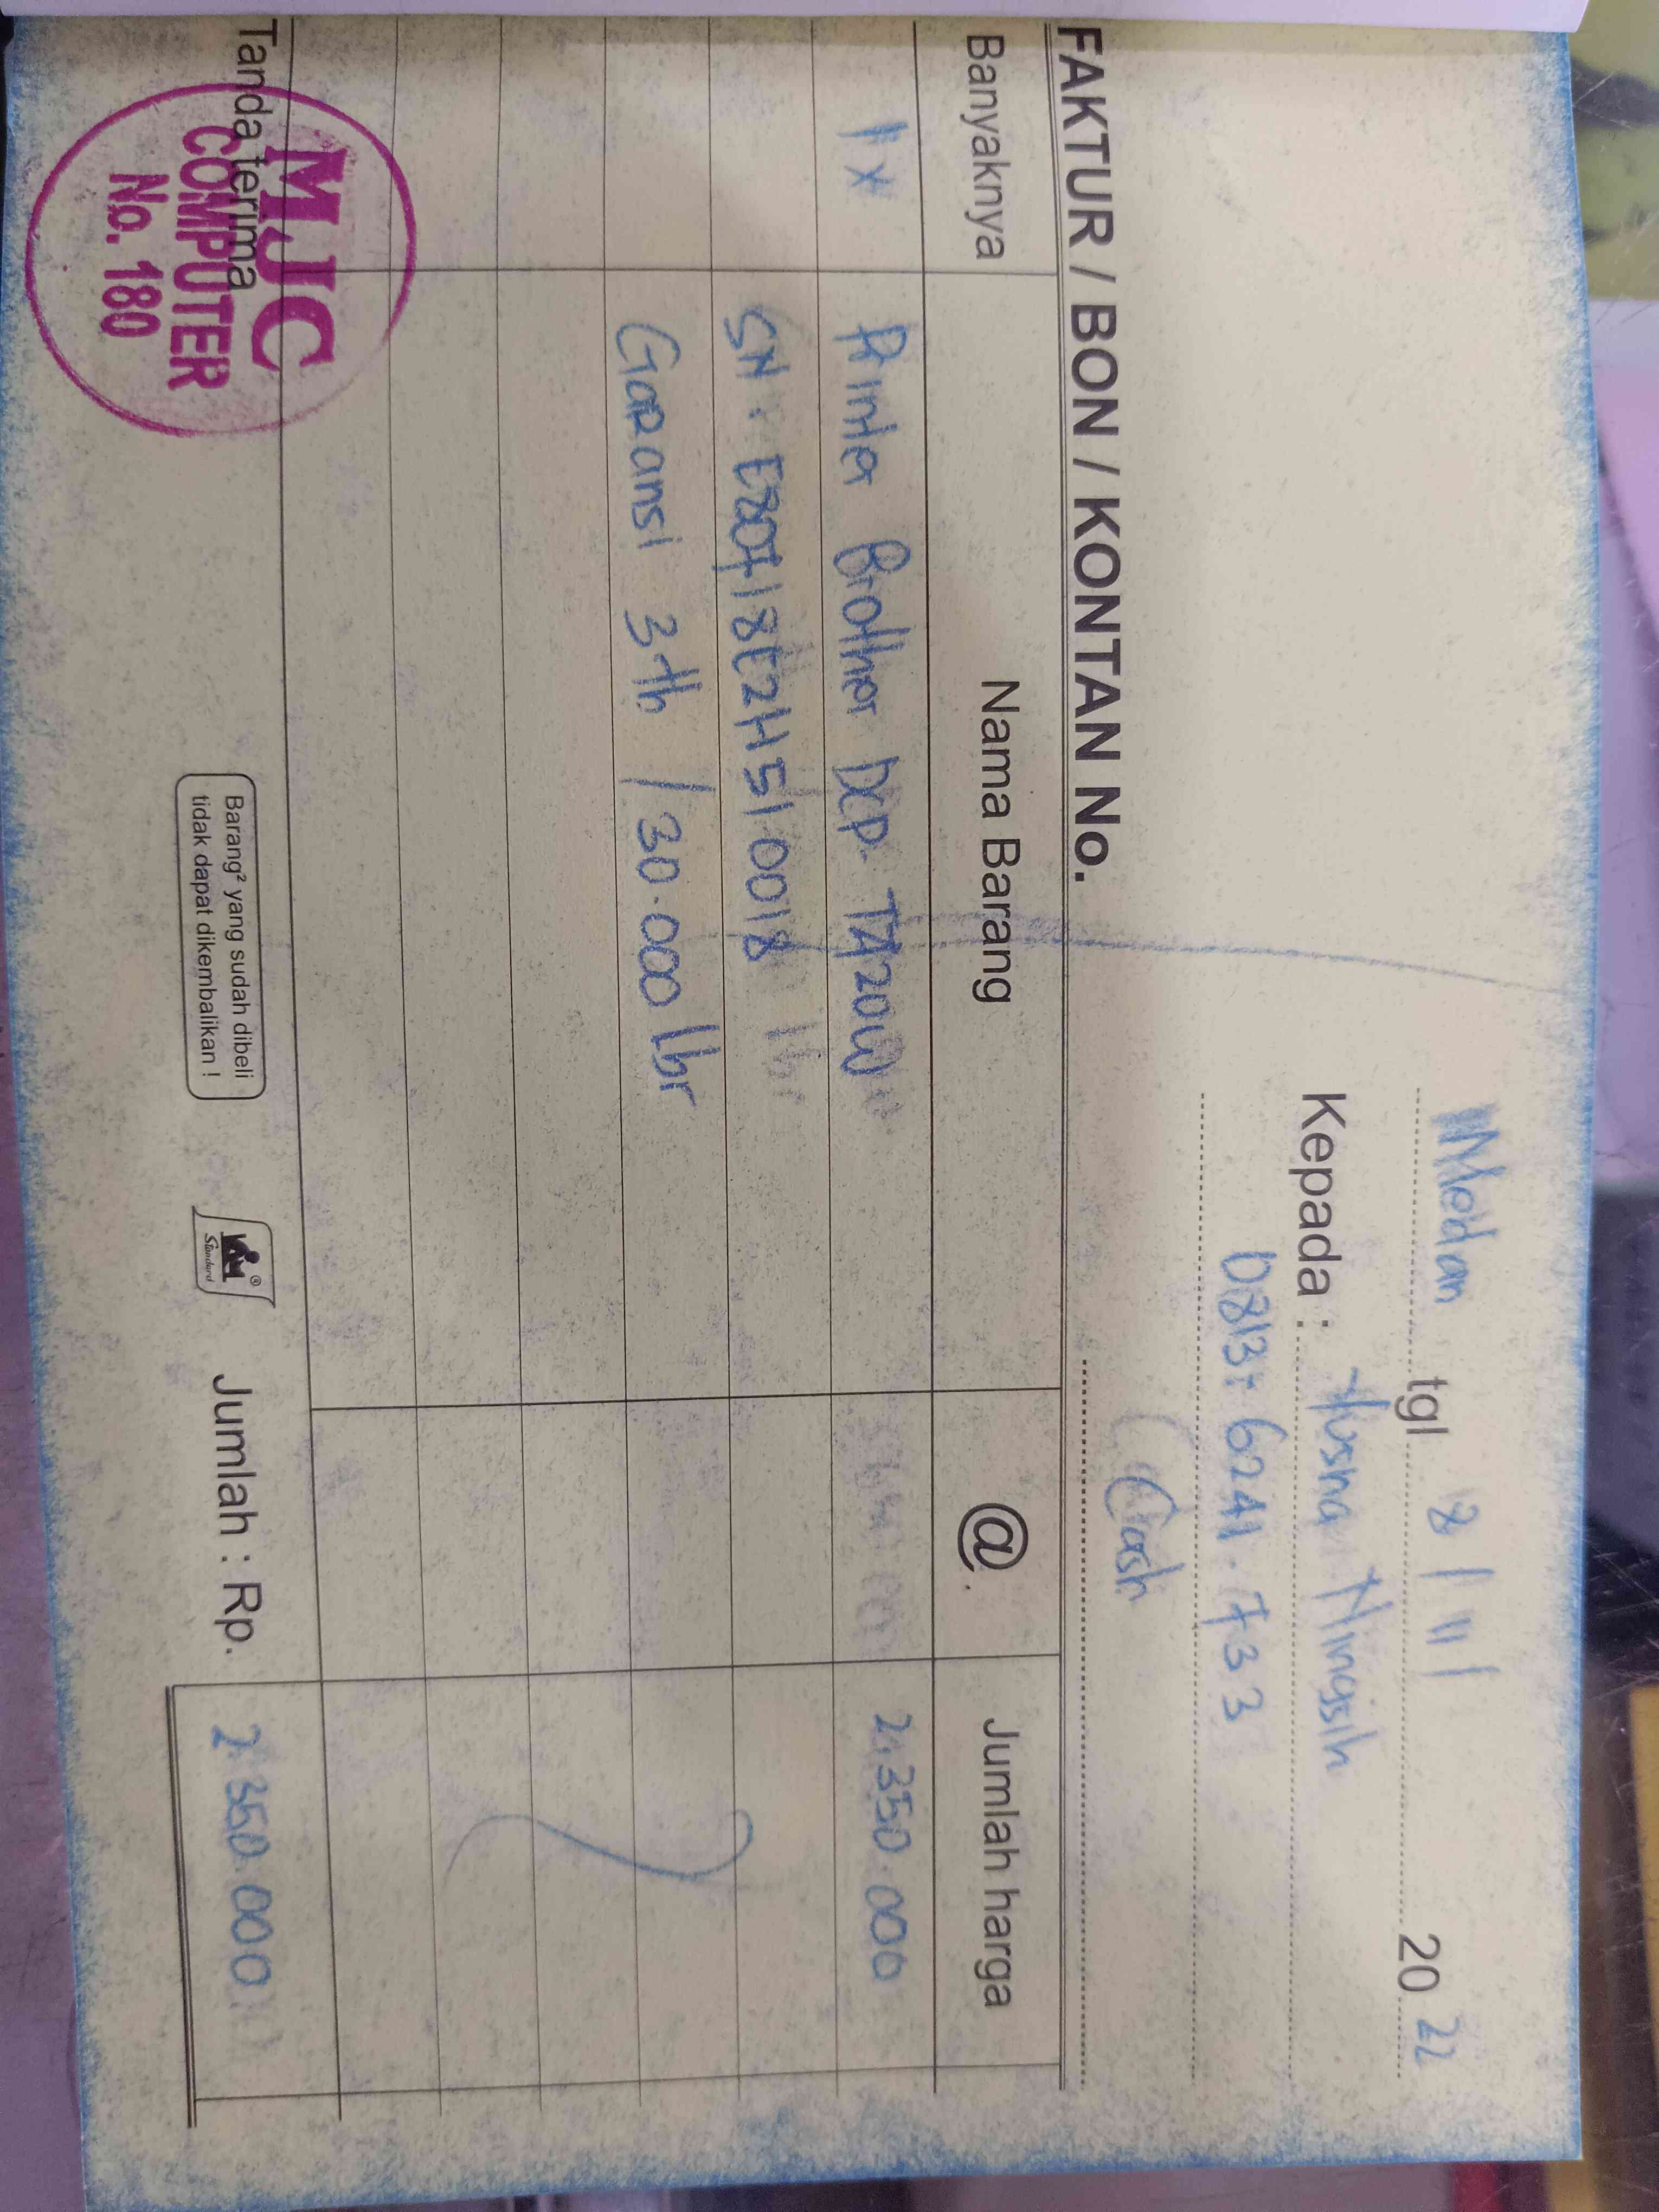 Medan tgl 8 / 11 / 20 22
Kepada : Yusna Ningsih
0813 - 6241 . 733
Cash
FAKTUR / BON / KONTAN No.
Banyaknya Nama Barang @ Jumlah harga
1 x Printer Brother DCP- T420W 2.350.000
SN : E80718E2H510018
Garansi 3 th / 30.000 lbr
Tanda terima
MJC
COMPUTER
No. 180
Barang² yang sudah dibeli
tidak dapat dikembalikan !
KAM ® Standard
Jumlah : Rp. 2.350.000